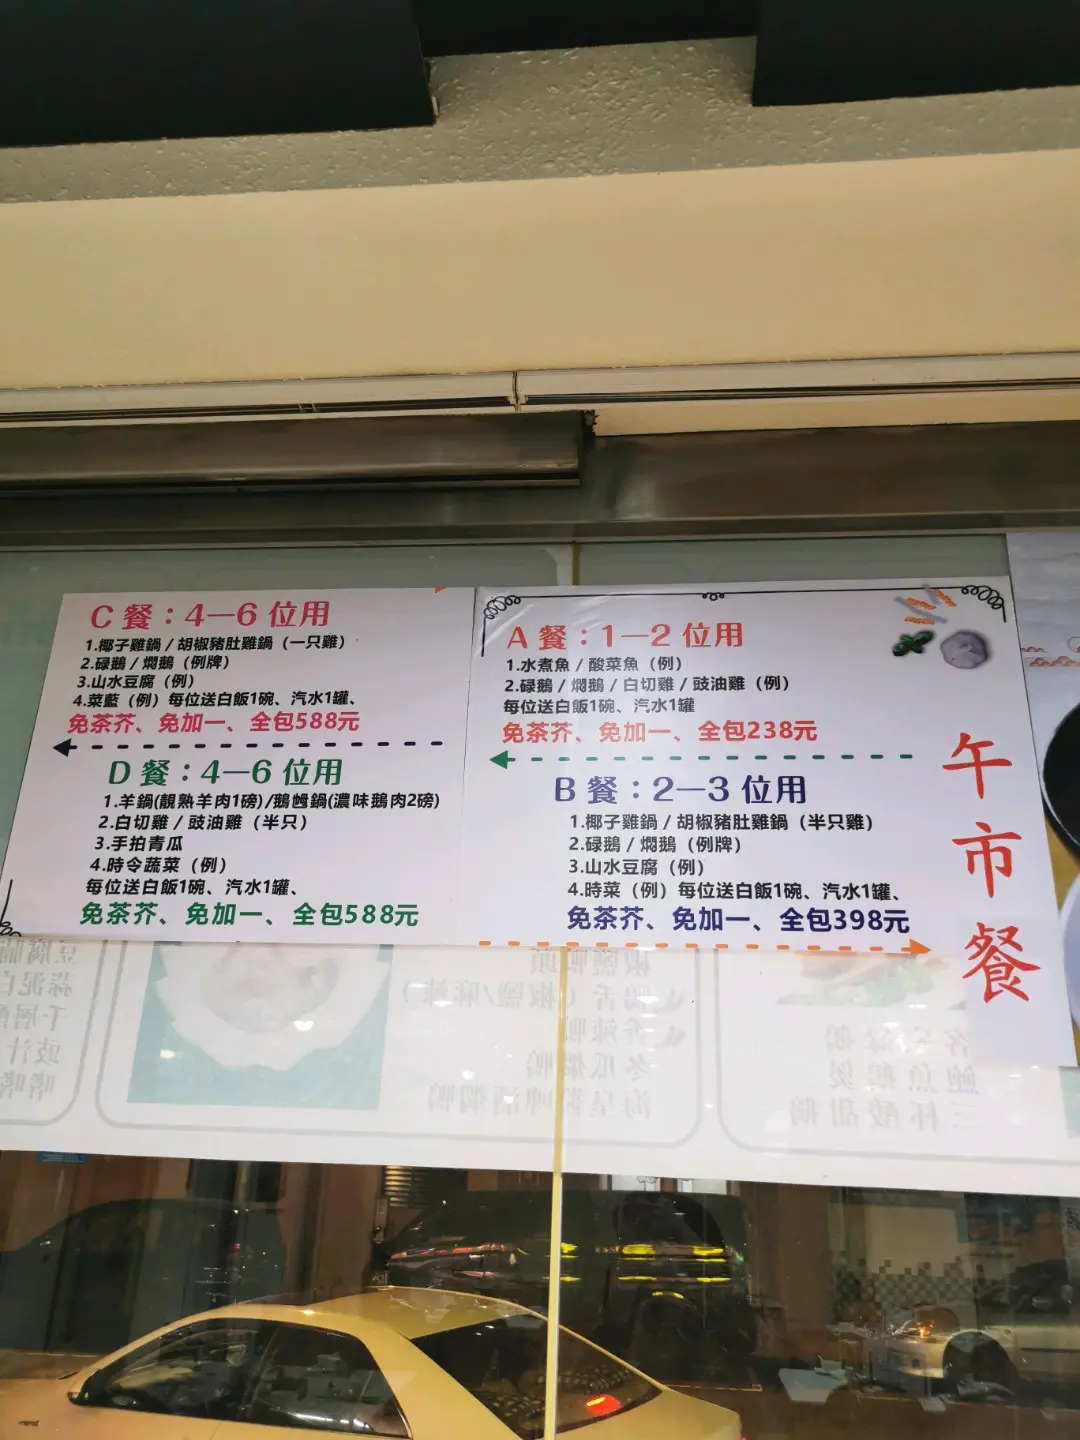 午市餐
A 餐：1—2 位用
1.水煮魚 / 酸菜魚（例）
2.碌鵝 / 燜鵝 / 白切雞 / 豉油雞（例）
每位送白飯1碗、汽水1罐
免茶芥、免加一、全包238元
B 餐：2—3 位用
1.椰子雞鍋 / 胡椒豬肚雞鍋（半只雞）
2.碌鵝 / 燜鵝（例牌）
3.山水豆腐（例）
4.時菜（例）每位送白飯1碗、汽水1罐、
免茶芥、免加一、全包398元
C 餐：4—6 位用
1.椰子雞鍋 / 胡椒豬肚雞鍋（一只雞）
2.碌鵝 / 燜鵝（例牌）
3.山水豆腐（例）
4.菜藍（例）每位送白飯1碗、汽水1罐、
免茶芥、免加一、全包588元
D 餐：4—6 位用
1.羊鍋(靚熟羊肉1磅)/鵝乸鍋(濃味鵝肉2磅)
2.白切雞 / 豉油雞（半只）
3.手拍青瓜
4.時令蔬菜（例）
每位送白飯1碗、汽水1罐、
免茶芥、免加一、全包588元